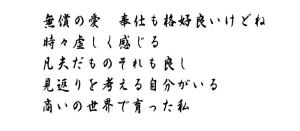 無償の愛　奉仕も格好良いけどね
時々虚しく感じる
凡夫だものそれも良し
見返りを考える自分がいる
商いの世界で育った私